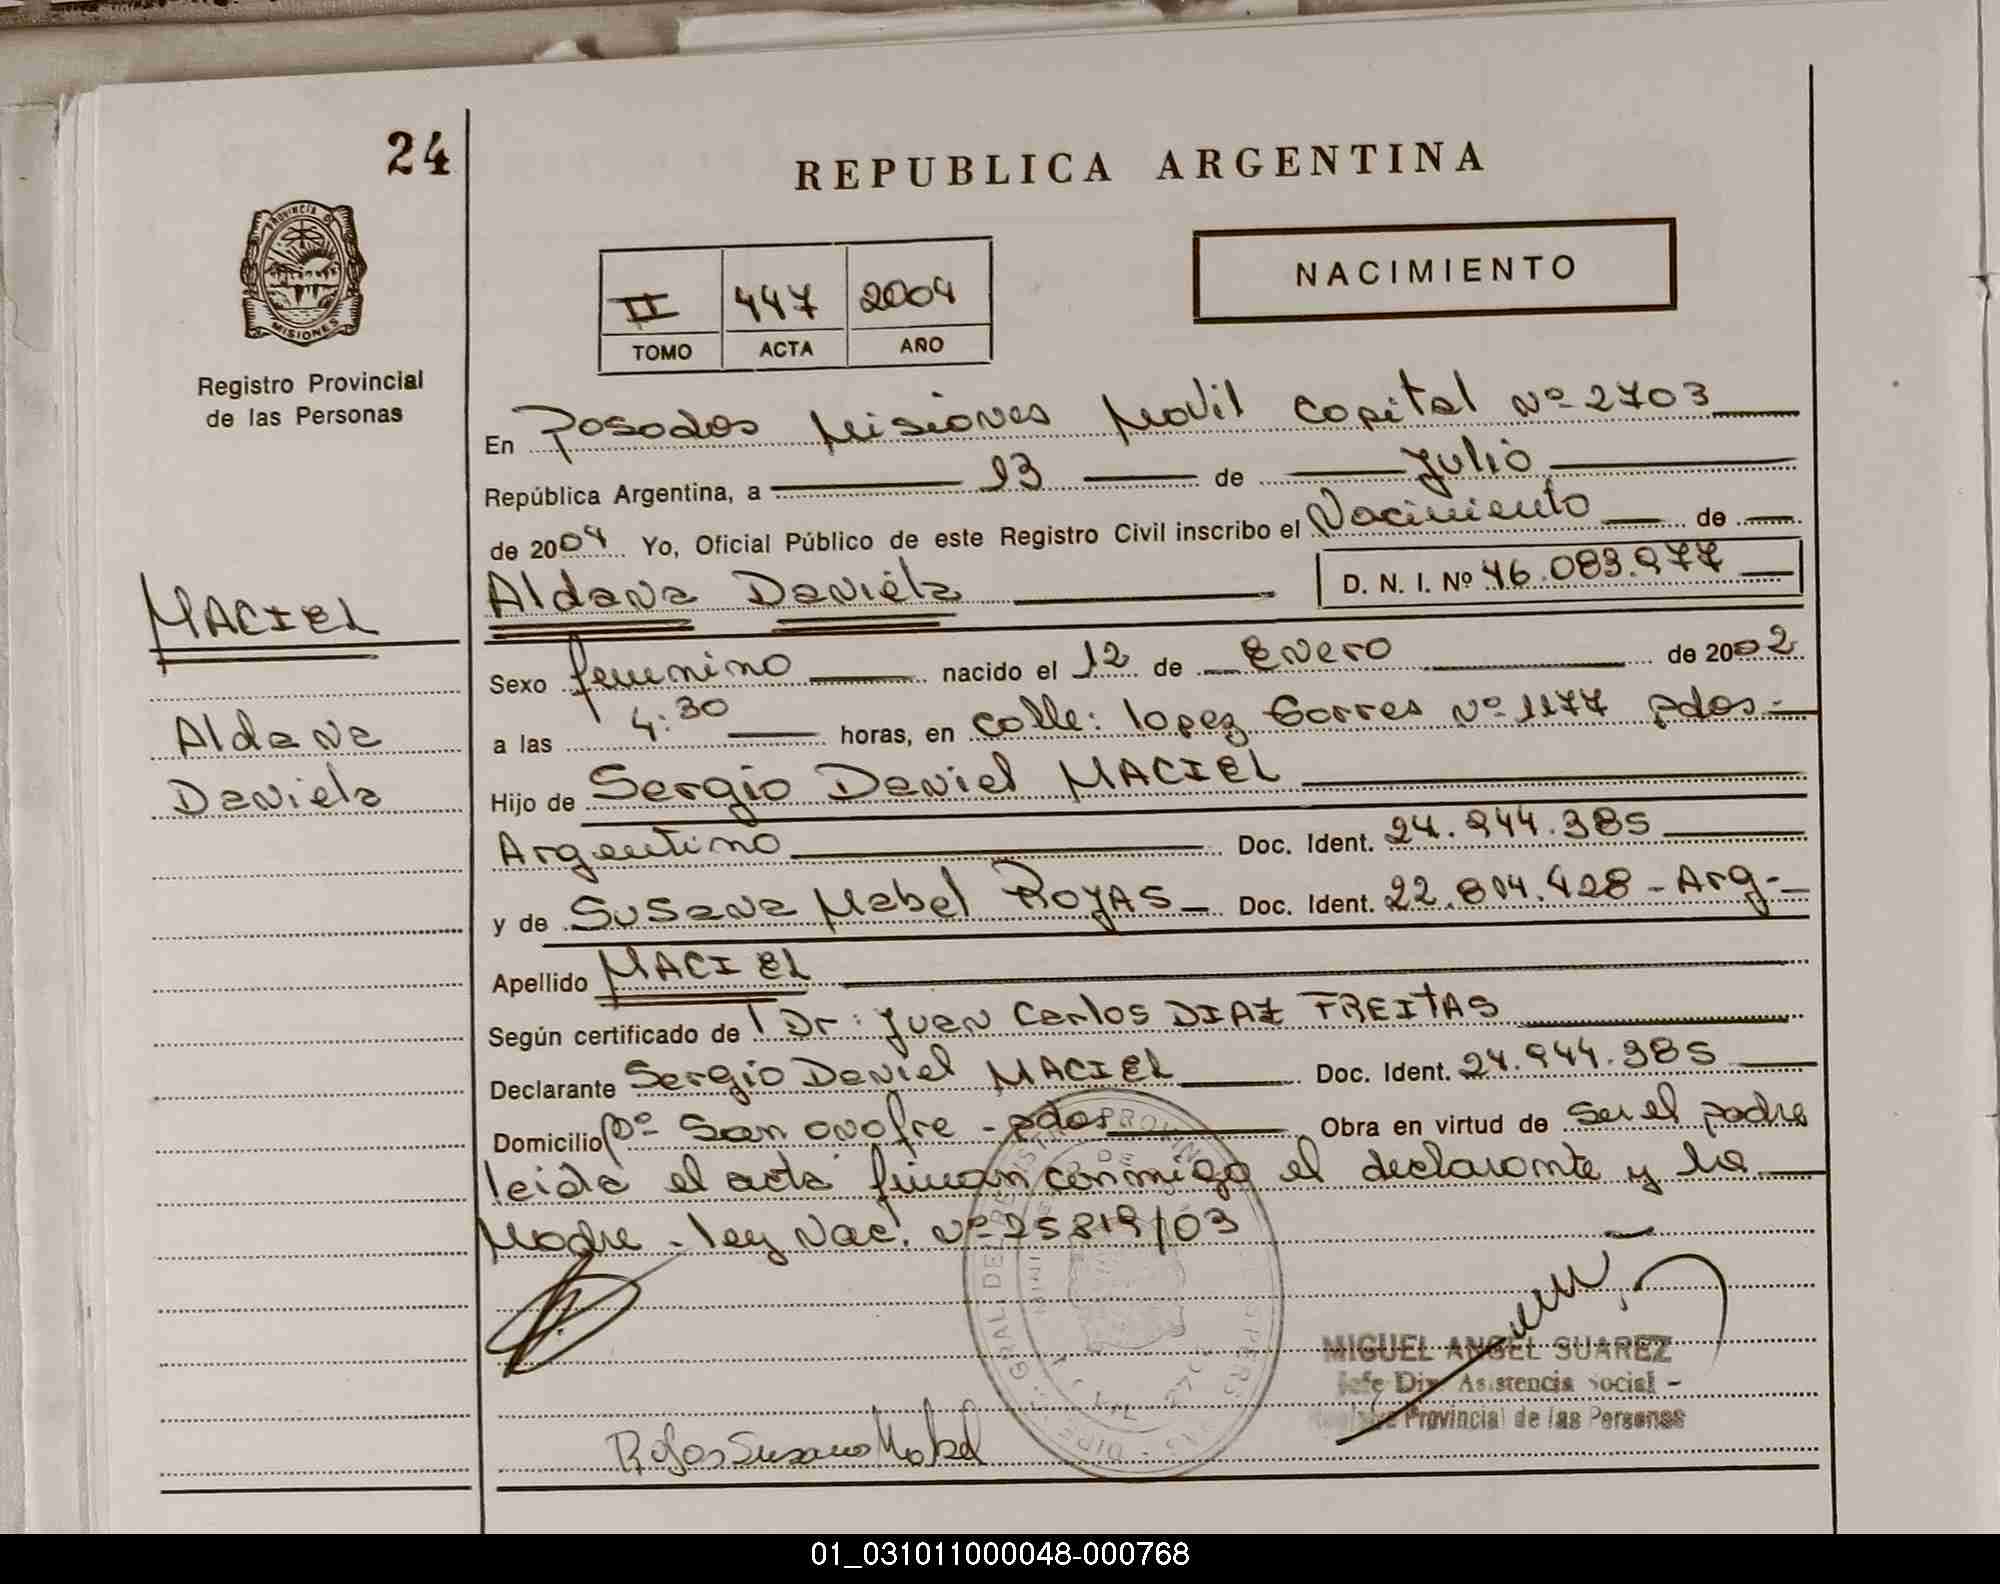 24
REPUBLICA ARGENTINA
PROVINCIA D
MISIONES
Registro Provincial
de las Personas
II 447 2004
TOMO ACTA AÑO
NACIMIENTO
En Posadas Misiones Movil Capital Nº 2703
República Argentina, a 13 de Julio
de 2004 Yo, Oficial Público de este Registro Civil inscribo el Nacimiento de
Aldana Daniela D. N. I. Nº 46.083.977
MACIEL
Aldana
Daniela
Sexo femenino nacido el 12 de Enero de 2002
a las 4:30 horas, en calle: lopez torres Nº 1177 pdas-
Hijo de Sergio Daniel MACIEL
Argentino Doc. Ident. 24.944.385
y de Susana Mabel ROJAS Doc. Ident. 22.804.428 - Arg-
Apellido MACIEL
Según certificado de Dr: Juan Carlos DIAZ FREITAS
Declarante Sergio Daniel MACIEL Doc. Ident. 24.944.385
Domicilio Bº San onofre - pdas Obra en virtud de Ser el padre
leida el acta firman conmigo el declarante y la
Madre - ley Nac. Nº 25819/03
MIGUEL ANGEL SUAREZ
Jefe Dir. Asistencia Social -
Registro Provincial de las Personas
Rojas Susana Mabel
01_031011000048-000768